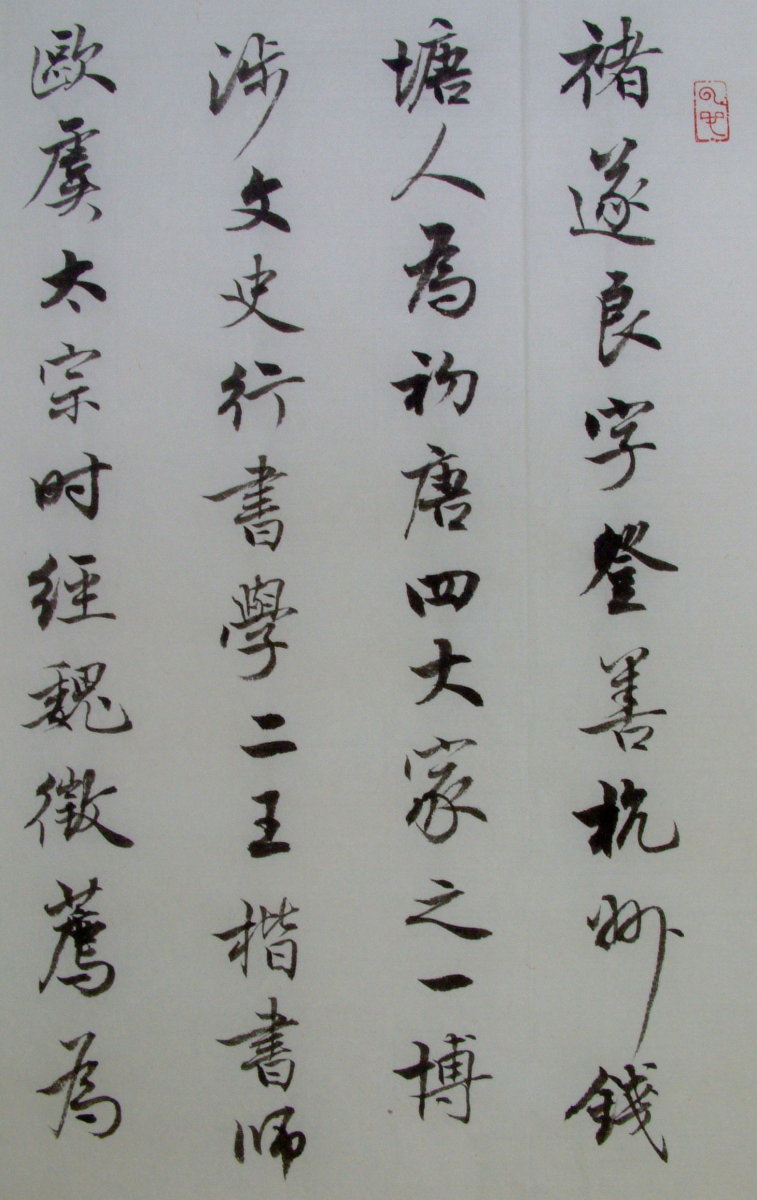 褚遂良字登善杭州錢
塘人為初唐四大家之一博
涉文史行書學二王楷书師
歐虞太宗时經魏徵薦為